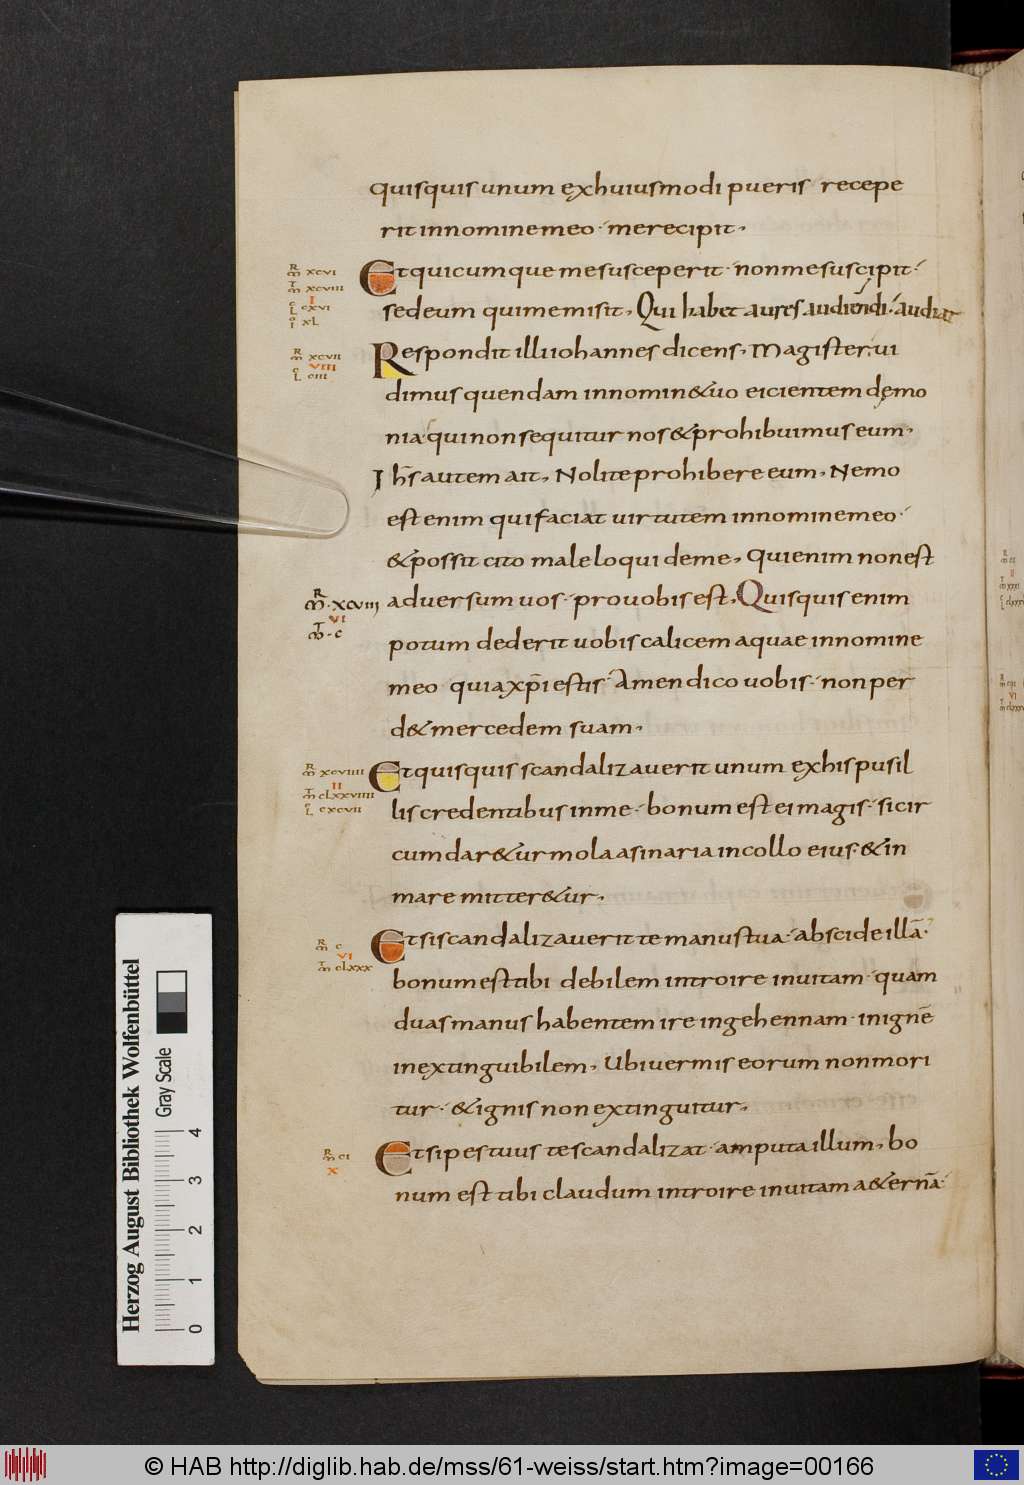 quisquis unum exhuiusmodi pueris recepe
rit innomine meo· merecipit,
R m̄ xcvi
T m̄ xcviii
I
L cxvi
Io xl
Et quicumque mesusceperit· nonmesuscipit·
sedeum quimemisit, Qui habet aures audiendi· audiat
R m̄ xcvii
VIII
L ciii
Respondit illi iohannes dicens, Magister, ui
dimus quendam innomin&uo eicientem demo
nia· quinonsequitur nos &prohibuimus eum,
Ih̄s autem ait, Nolite prohibere eum, Nemo
est enim qui faciat uirtutem innomine meo·
&possit cito maleloqui deme, Quienim nonest
R m̄·xcviii
VI
T m̄·c
aduersum uos· prouobis est, Quisquis enim
potum dederit uobis calicem aquae innomine
meo quia xp̄i estis· Amen dico uobis· nonper
d& mercedem suam,
R m̄ xcviiii
II
T m̄ clxxviiii
L cxcvii
Et quisquis scandalizauerit unum exhis pusil
lis credentibus inme· bonum est ei magis· sicir
cumdar&ur mola asinaria incollo eius· &in
mare mitter&ur,
R m̄ c
VI
T m̄ clxxx
Et siscandalizauerit te manus tua· abscide illā·
bonum est tibi debilem introire inuitam· quam
duas manus habentem ire ingehennam· inignē
inextinguibilem, Ubi uermis eorum nonmori
tur· &ignis non extinguitur,
R m̄ ci
X
Et sipes tuus tescandalizat· amputa illum, bo
num est tibi claudum introire inuitam a&ernā·
Herzog August Bibliothek Wolfenbüttel
Gray Scale
0 1 2 3 4
© HAB http://diglib.hab.de/mss/61-weiss/start.htm?image=00166